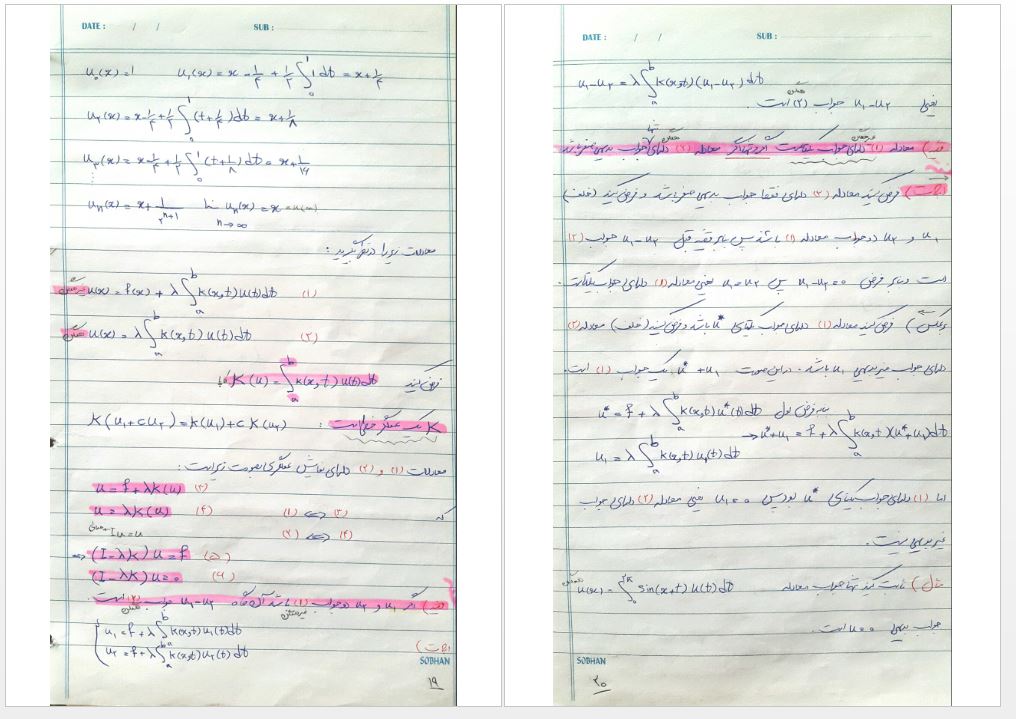 DATE : / / SUB :
u₀(x) = 1 u₁(x) = x - ۱/۴ + ۱/۲ ∫₀¹ 1 dt = x + ۱/۴
u₂(x) = x - ۱/۴ + ۱/۲ ∫₀¹ (t + ۱/۴) dt = x + ۱/۸
u₃(x) = x - ۱/۴ + ۱/۲ ∫₀¹ (t + ۱/۸) dt = x + ۱/۱۶
⋮
uₙ(x) = x + 1/۲ⁿ⁺¹ lim n→∞ uₙ(x) = x = u(x)
معادلات زیر را در نظر بگیرید :
غیرهمگن u(x) = f(x) + λ ∫ₐᵇ k(x,t) u(t) dt (۱)
همگن u(x) = λ ∫ₐᵇ k(x,t) u(t) dt (۲)
فرض کنید K(u) = ∫ₐᵇ k(x,t) u(t) dt
K یک عملگر خطی است : K(u₁ + cu₂) = k(u₁) + c K(u₂)
معادلات (۱) و (۲) دارای نمایش عملگری بصورت زیر است :
u = f + λK(u) (۳)
u = λK(u) (۴) که (۱) ⇔ (۳)
Iu = u (۲) ⇔ (۴)
⇒ (I - λK) u = f (۵)
(I - λK) u = 0 (۶)
اگر u₁ و u₂ دو جواب (۱) باشد آن گاه u₁ - u₂ جواب (۲) است.
غیرهمگن همگن
اثبات) { u₁ = f + λ ∫ₐᵇ k(x,t) u₁(t) dt
u₂ = f + λ ∫ₐᵇ k(x,t) u₂(t) dt
SOBHAN
۱۹
DATE : / / SUB :
u₁ - u₂ = λ ∫ₐᵇ k(x,t) (u₁ - u₂) dt
یعنی u₁ - u₂ جواب (۲) است.
همگن
معادله (۱) دارای جواب یکتاست اگر و تنها اگر معادله (۲) دارای تنها جواب بدیهی صفر باشد
غیرهمگن همگن
اثبات) فرض کنید معادله (۲) دارای فقط جواب بدیهی صفر باشد و فرض کنید (خلف)
u₁ و u₂ دو جواب معادله (۱) باشد پس بنابر قضیه قبل u₁ - u₂ جواب (۲)
است و بنابر فرض u₁ - u₂ = 0 پس u₁ = u₂ یعنی معادله (۱) دارای جواب یکتاست.
برعکس) فرض کنید معادله (۱) دارای جواب یکتای u* باشد و فرض کنید (خلف) معادله (۲)
دارای جواب غیر بدیهی u₁ باشد. در این صورت u* + u₁ یک جواب (۱) است.
u* = f + λ ∫ₐᵇ k(x,t) u*(t) dt
⇒ u* + u₁ = f + λ ∫ₐᵇ k(x,t)(u* + u₁) dt
u₁ = λ ∫ₐᵇ k(x,t) u₁(t) dt
اما (۱) دارای جواب یکتای u* بود پس u₁ = 0 یعنی معادله (۲) دارای جواب
غیر بدیهی نیست.
مثال) ثابت کنید تنها جواب معادله u(x) = ∫₀^۲π sin(x+t) u(t) dt همگن
جواب بدیهی u = 0 است.
SOBHAN
۲۰